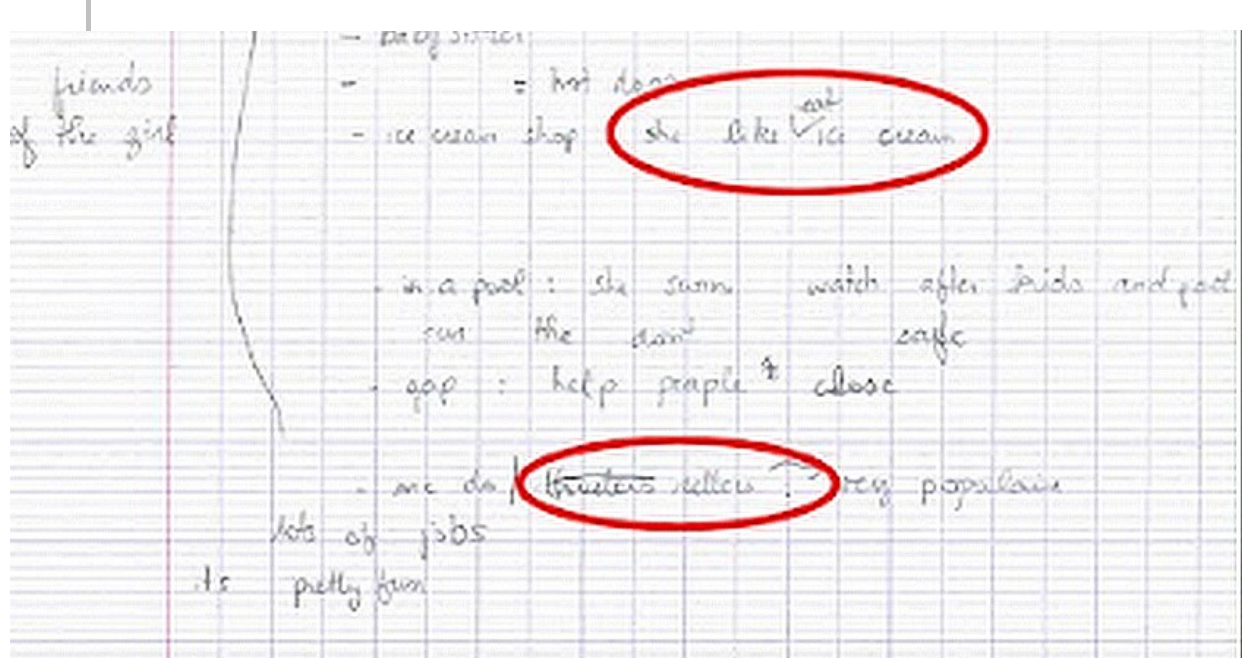 - baby sitter
friends - = hot dogs
of the girl - ice cream shop she like eat ice cream
- in a pool : she swim watch after kids and pool
sun the don't safe
- gap : help people close
- one do sellers ? very populair
lots of jobs
its pretty fun